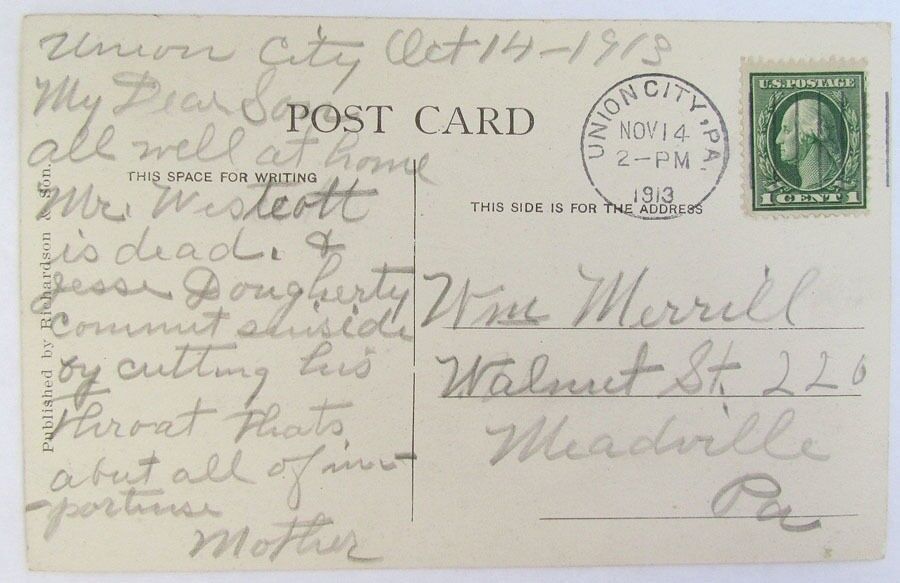 Union City Oct 14-1913
My Dear Son
POST CARD
all well at home
THIS SPACE FOR WRITING
Mr. Westcott
is dead. &
Jesse Dougherty
commit suiside
by cutting his
throat thats
abut all of im-
-portinse
Mother
Published by Richardson & Son.
UNION CITY, PA.
NOV 14
2-PM
1913
U.S. POSTAGE
1 CENT 1
THIS SIDE IS FOR THE ADDRESS
Wm Merrill
Walnut St. 220
Meadville
Pa